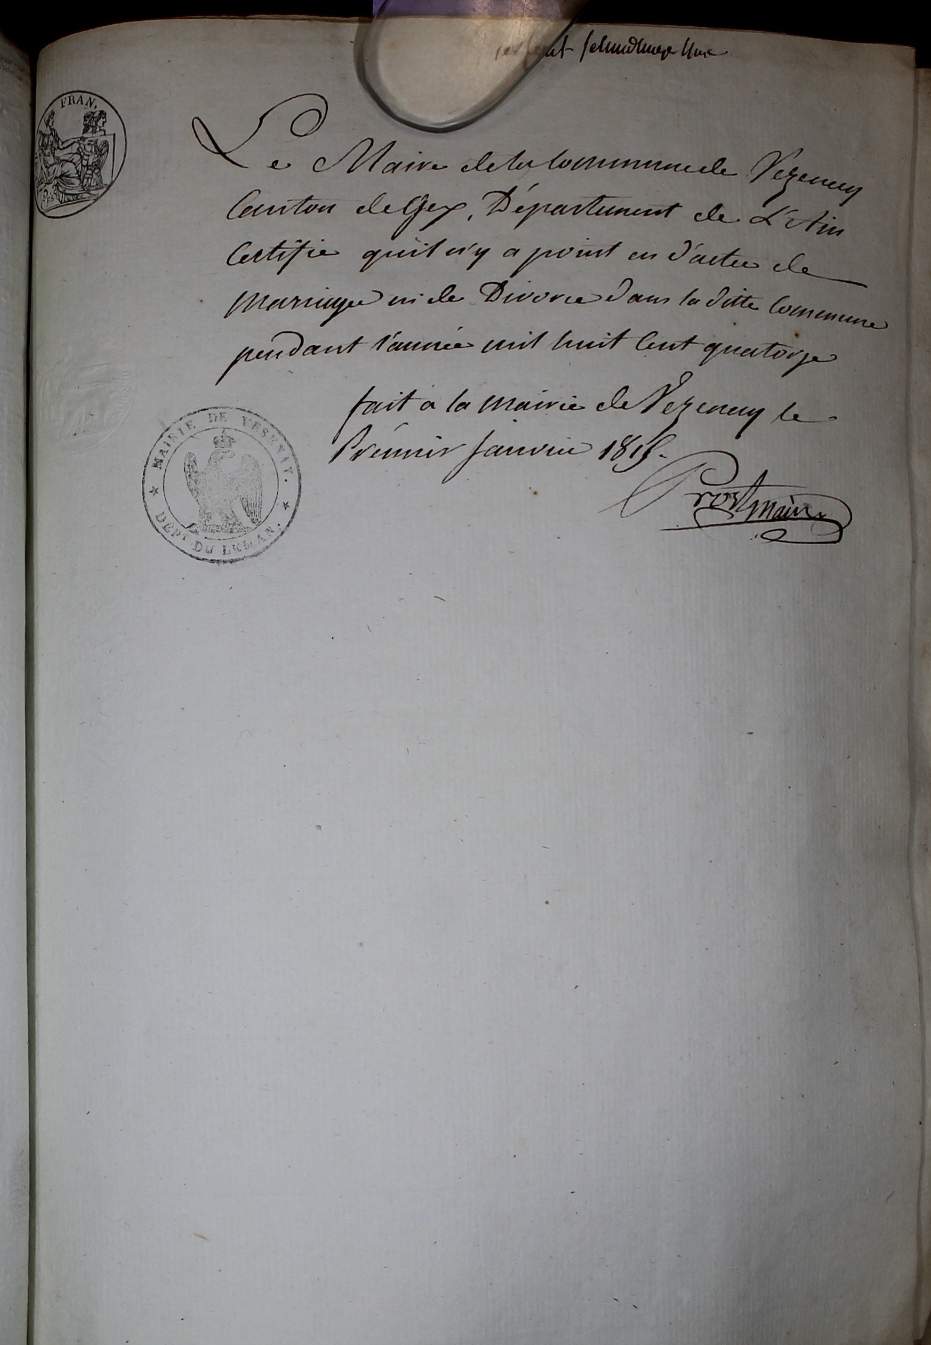 FRAN.
Le Maire de la Commune de Vezeney
Canton de Gex, Département de L'Ain
Certifie qu'il n'y a point eu d'actes de
Mariage ni de Divorce dans la ditte Commune
pendant l'année mil huit Cent quatorze
fait à la Mairie de Vezeney le
Prémier Janvier 1815.
Prost Maire
MAIRIE DE VESENAY.
DEPT DU LEMAN.